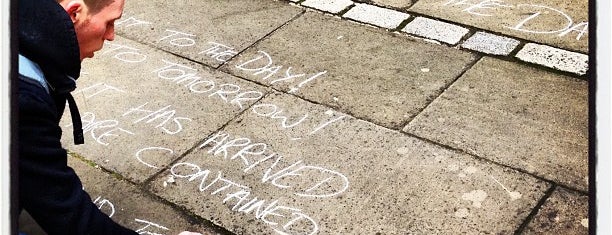 THE DA
T TO THE DAY!
TO TOMORROW!
IT HAS ARRIVED
ARE CONTAINED